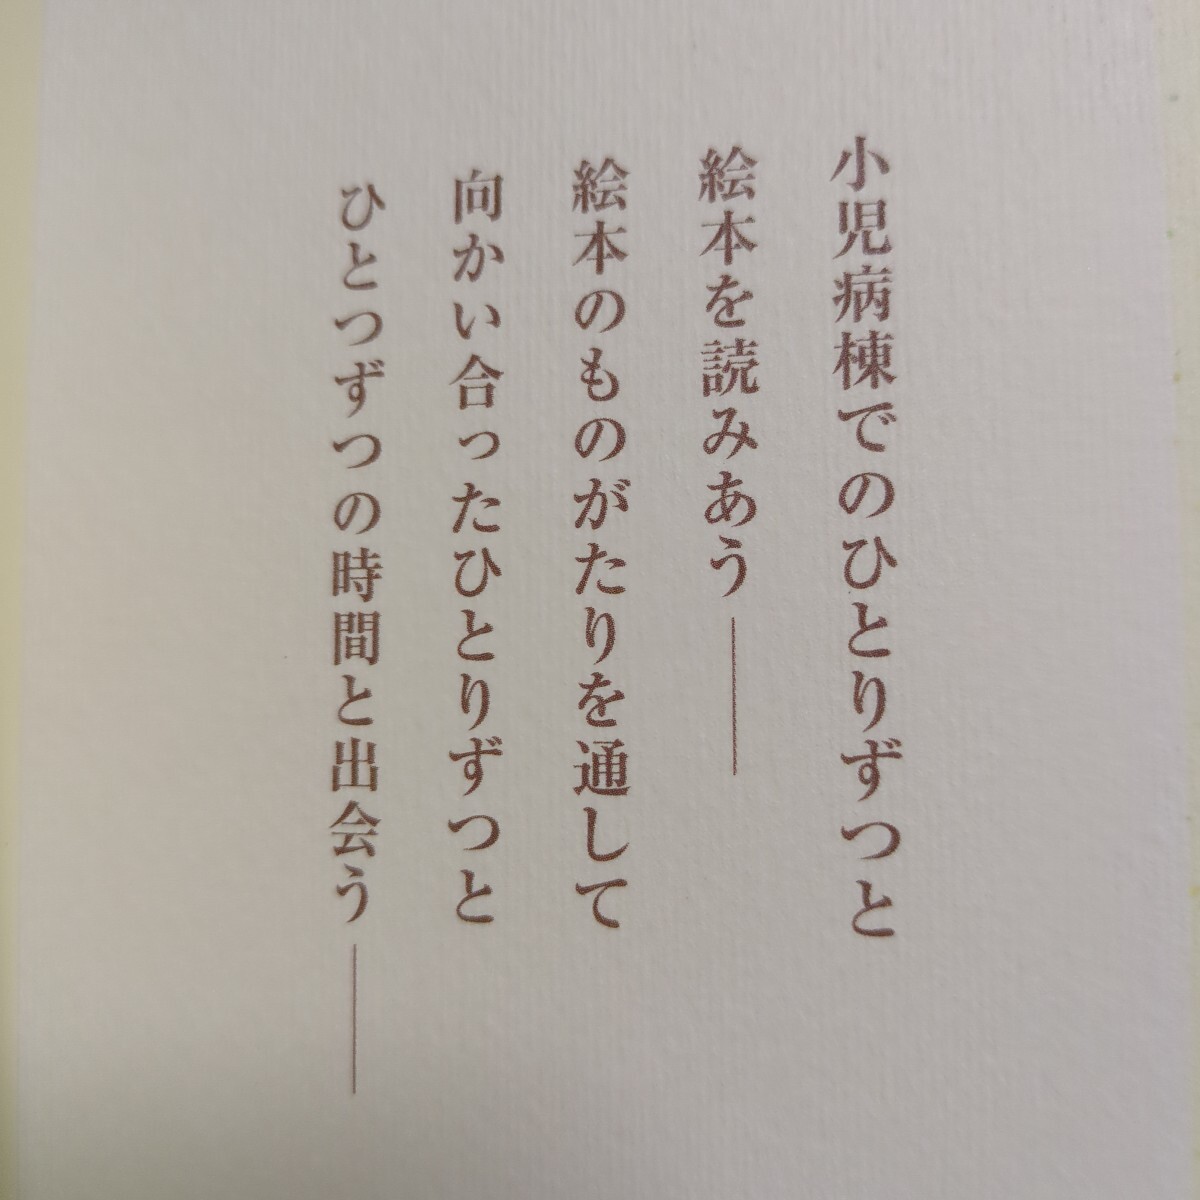 小児病棟でのひとりずつと
絵本を読みあう――
絵本のものがたりを通して
向かい合ったひとりずつと
ひとつずつの時間と出会う――